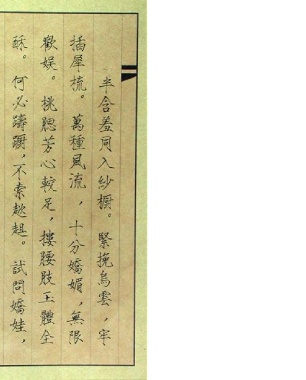 半含羞同入紗櫥。緊挽烏雲,牢
插犀梳。萬種風流,十分嬌媚,無限
歡娱。梳聽芳心較足,摟腰肢玉體全
酥。何必躊躕,不索趑趄。試問嬌娃,